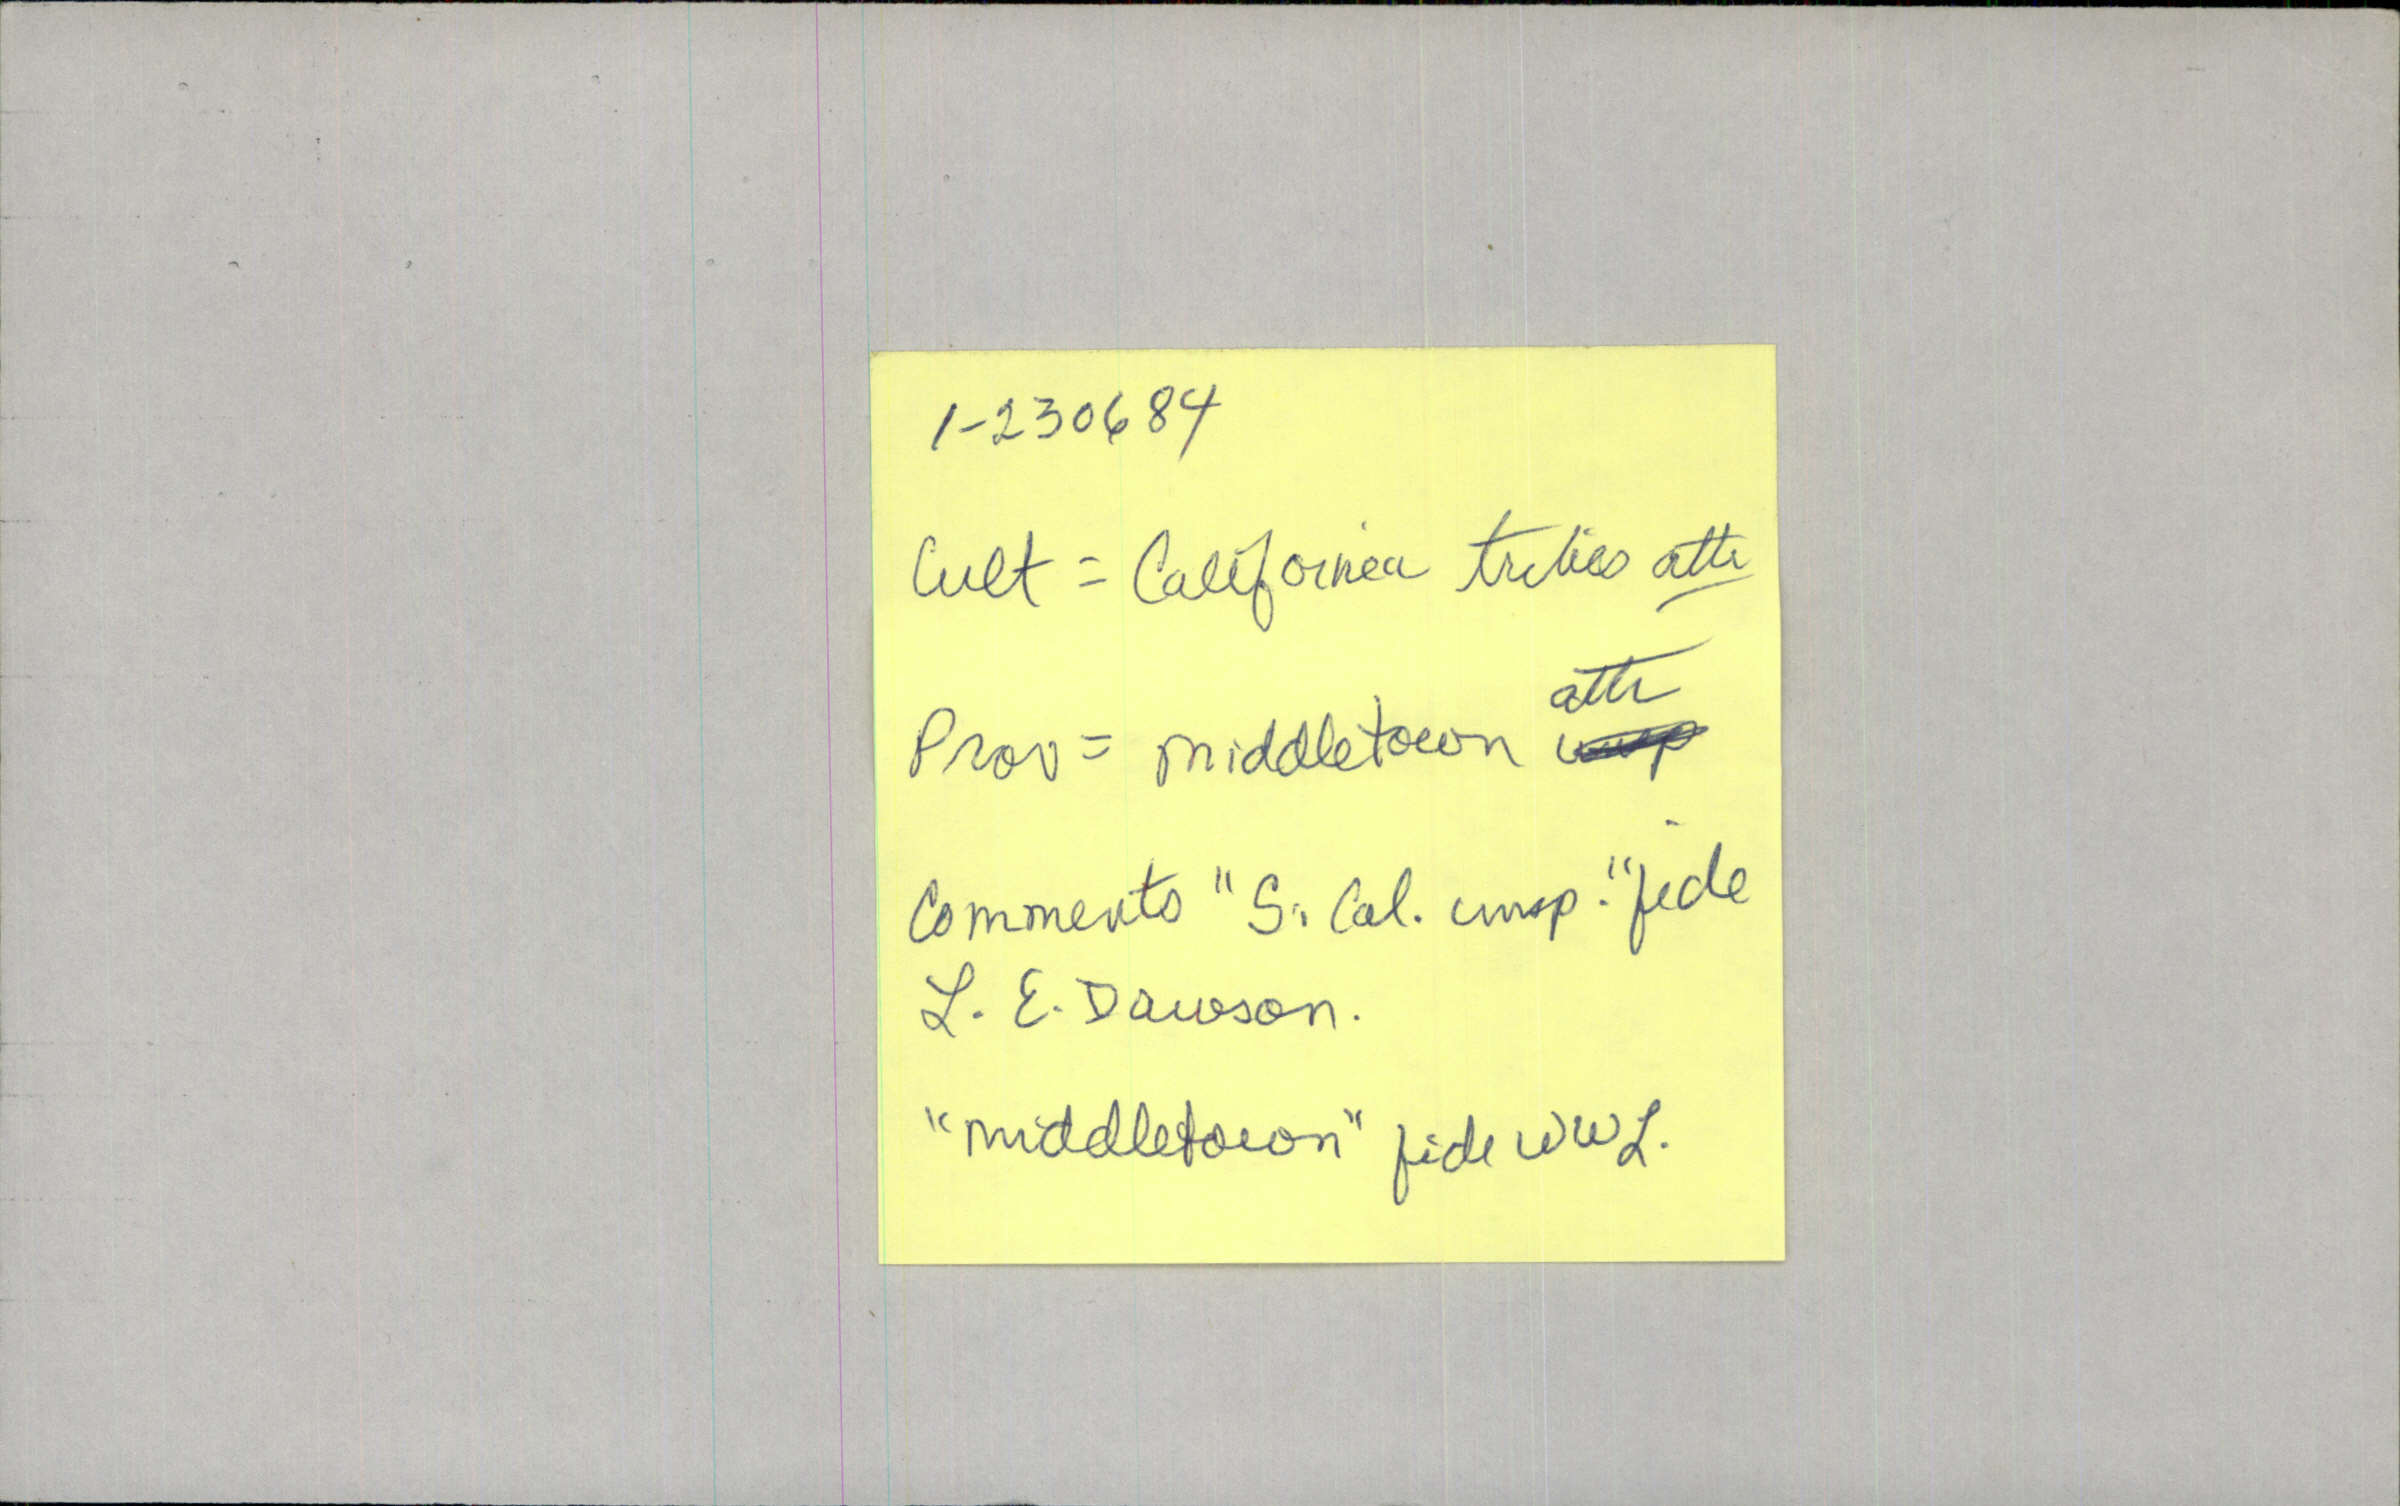 1-230684
Cult = California tribes attr
attr
Prov = Middletown unsp
Comments "S. Cal. unsp." fide
L. E. Dawson.
"Middletown" fide WWL.